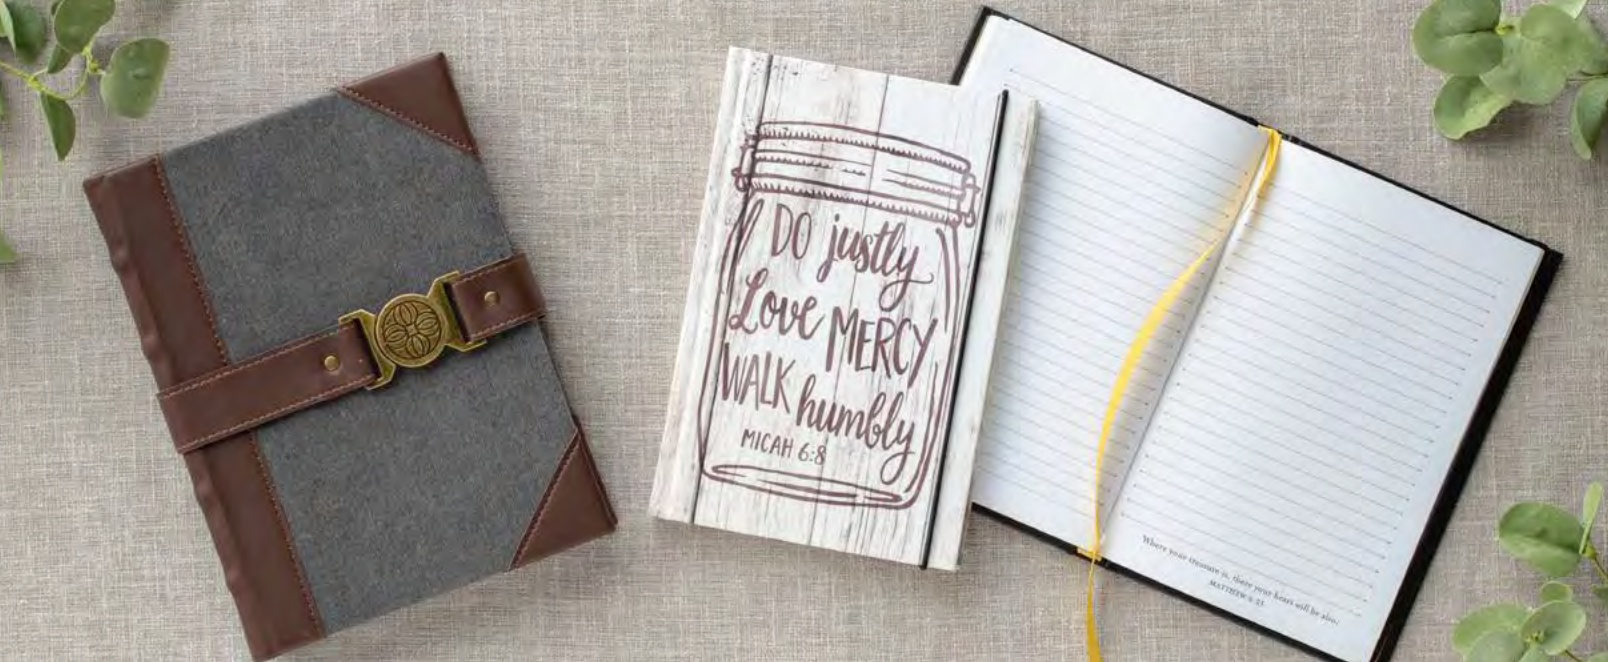 DO justly
Love MERCY
WALK humbly
MICAH 6:8
Where your treasure is, there your heart will be also.
MATTHEW 6:21